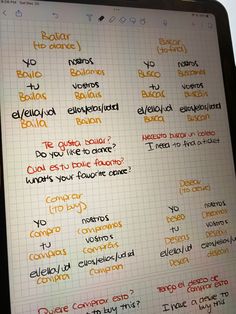 Bailar
(to dance)
yo nostros
Bailo Bailamos
tu vostros
Bailas Bailáis
el/ella/ud ellos/ellas/uds
Baila Bailan
Te gusta bailar?
Do you like to dance?
Cual es tu baile favorito?
What's your favorite dance?
Buscar
(to find)
yo nostros
Busco Buscamos
tu vostros
Buscas Buscáis
el/ella/ud ellos/ellas/uds
Busca Buscan
Necesito buscar un boleto
I need to find a ticket
Comprar
(to buy)
yo nostros
Compro compramos
tu vostros
compras compráis
el/ella/ud ellos/ellas/uds
compra compran
Quiere comprar esto?
to buy this?
Desear
yo nostros
Deseo
tu vostros
Deseas deseáis
el/ella/ud ellos/ellas/uds
Desea desean
Tengo el deseo de
comprar esto
I have a desire to
buy this